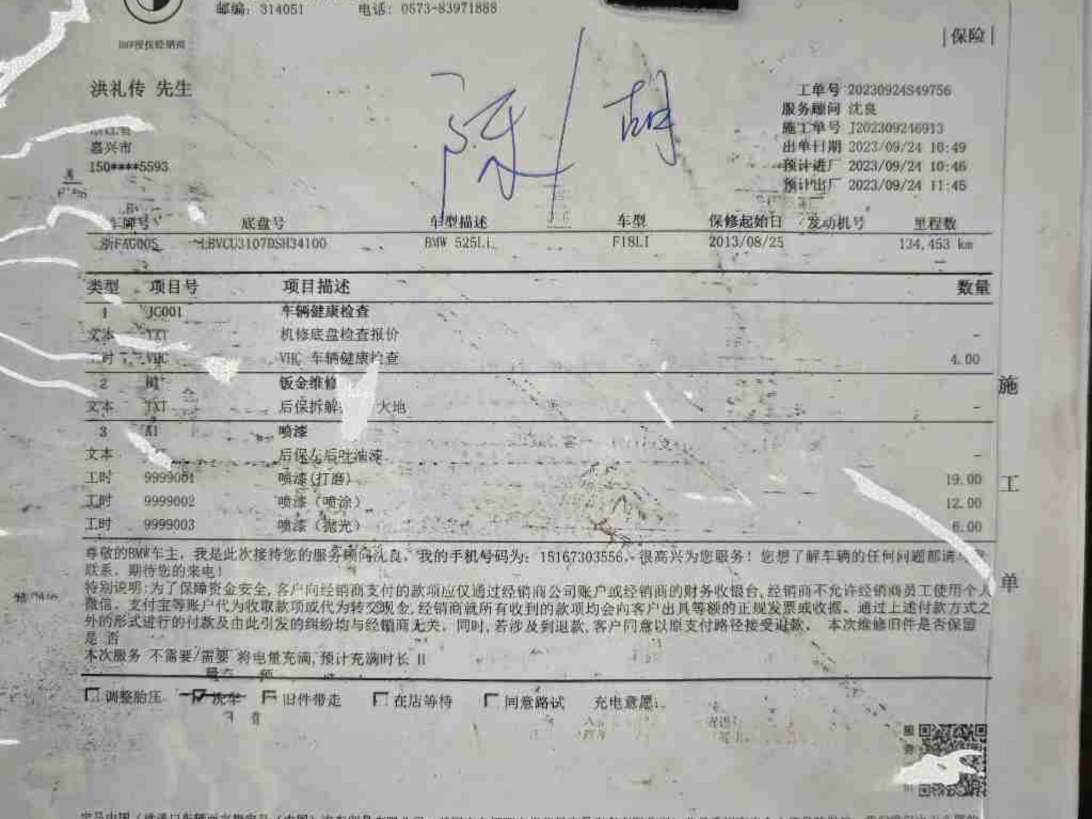 邮编: 314051 电话: 0573-83971888
BMW授权经销商
|保险|
洪礼传 先生
嘉兴市
150****5593
工单号 20230924S49756
服务顾问 沈良
施工单号 J202309246913
出单日期 2023/09/24 10:49
预计进厂 2023/09/24 10:46
预计出厂 2023/09/24 11:45
车牌号 底盘号 车型描述 车型 保修起始日 发动机号 里程数
LBVCU3107DSH34100 BMW 525Li F18LI 2013/08/25 134,453 km
类型 项目号 项目描述 数量
1 JC001 车辆健康检查
文本 TXT 机修底盘检查报价 -
工时 VHC VHC 车辆健康检查 4.00
2 钣金维修
文本 TXT 后保拆解 大地 -
3 A1 喷漆
文本 后保左后叶油漆 -
工时 9999001 喷漆(打磨) 19.00
工时 9999002 喷漆 (喷涂) 12.00
工时 9999003 喷漆 (抛光) 6.00
尊敬的BMW车主, 我是此次接待您的服务顾问沈良, 我的手机号码为: 15167303556, 很高兴为您服务! 您想了解车辆的任何问题都请
联系, 期待您的来电!
特别说明:为了保障资金安全,客户向经销商支付的款项应仅通过经销商公司账户或经销商的财务收银台,经销商不允许经销商员工使用个人
微信、支付宝等账户代为收取款项或代为转交现金,经销商就所有收到的款项均会向客户出具等额的正规发票或收据。通过上述付款方式之
外的形式进行的付款及由此引发的纠纷均与经销商无关。同时,若涉及到退款,客户同意以原支付路径接受退款。 本次维修旧件是否保留
是 否
本次服务 不需要/需要 将电量充满,预计充满时长 H
调整胎压 洗车 旧件带走 在店等待 同意路试 充电意愿:
施
工
单